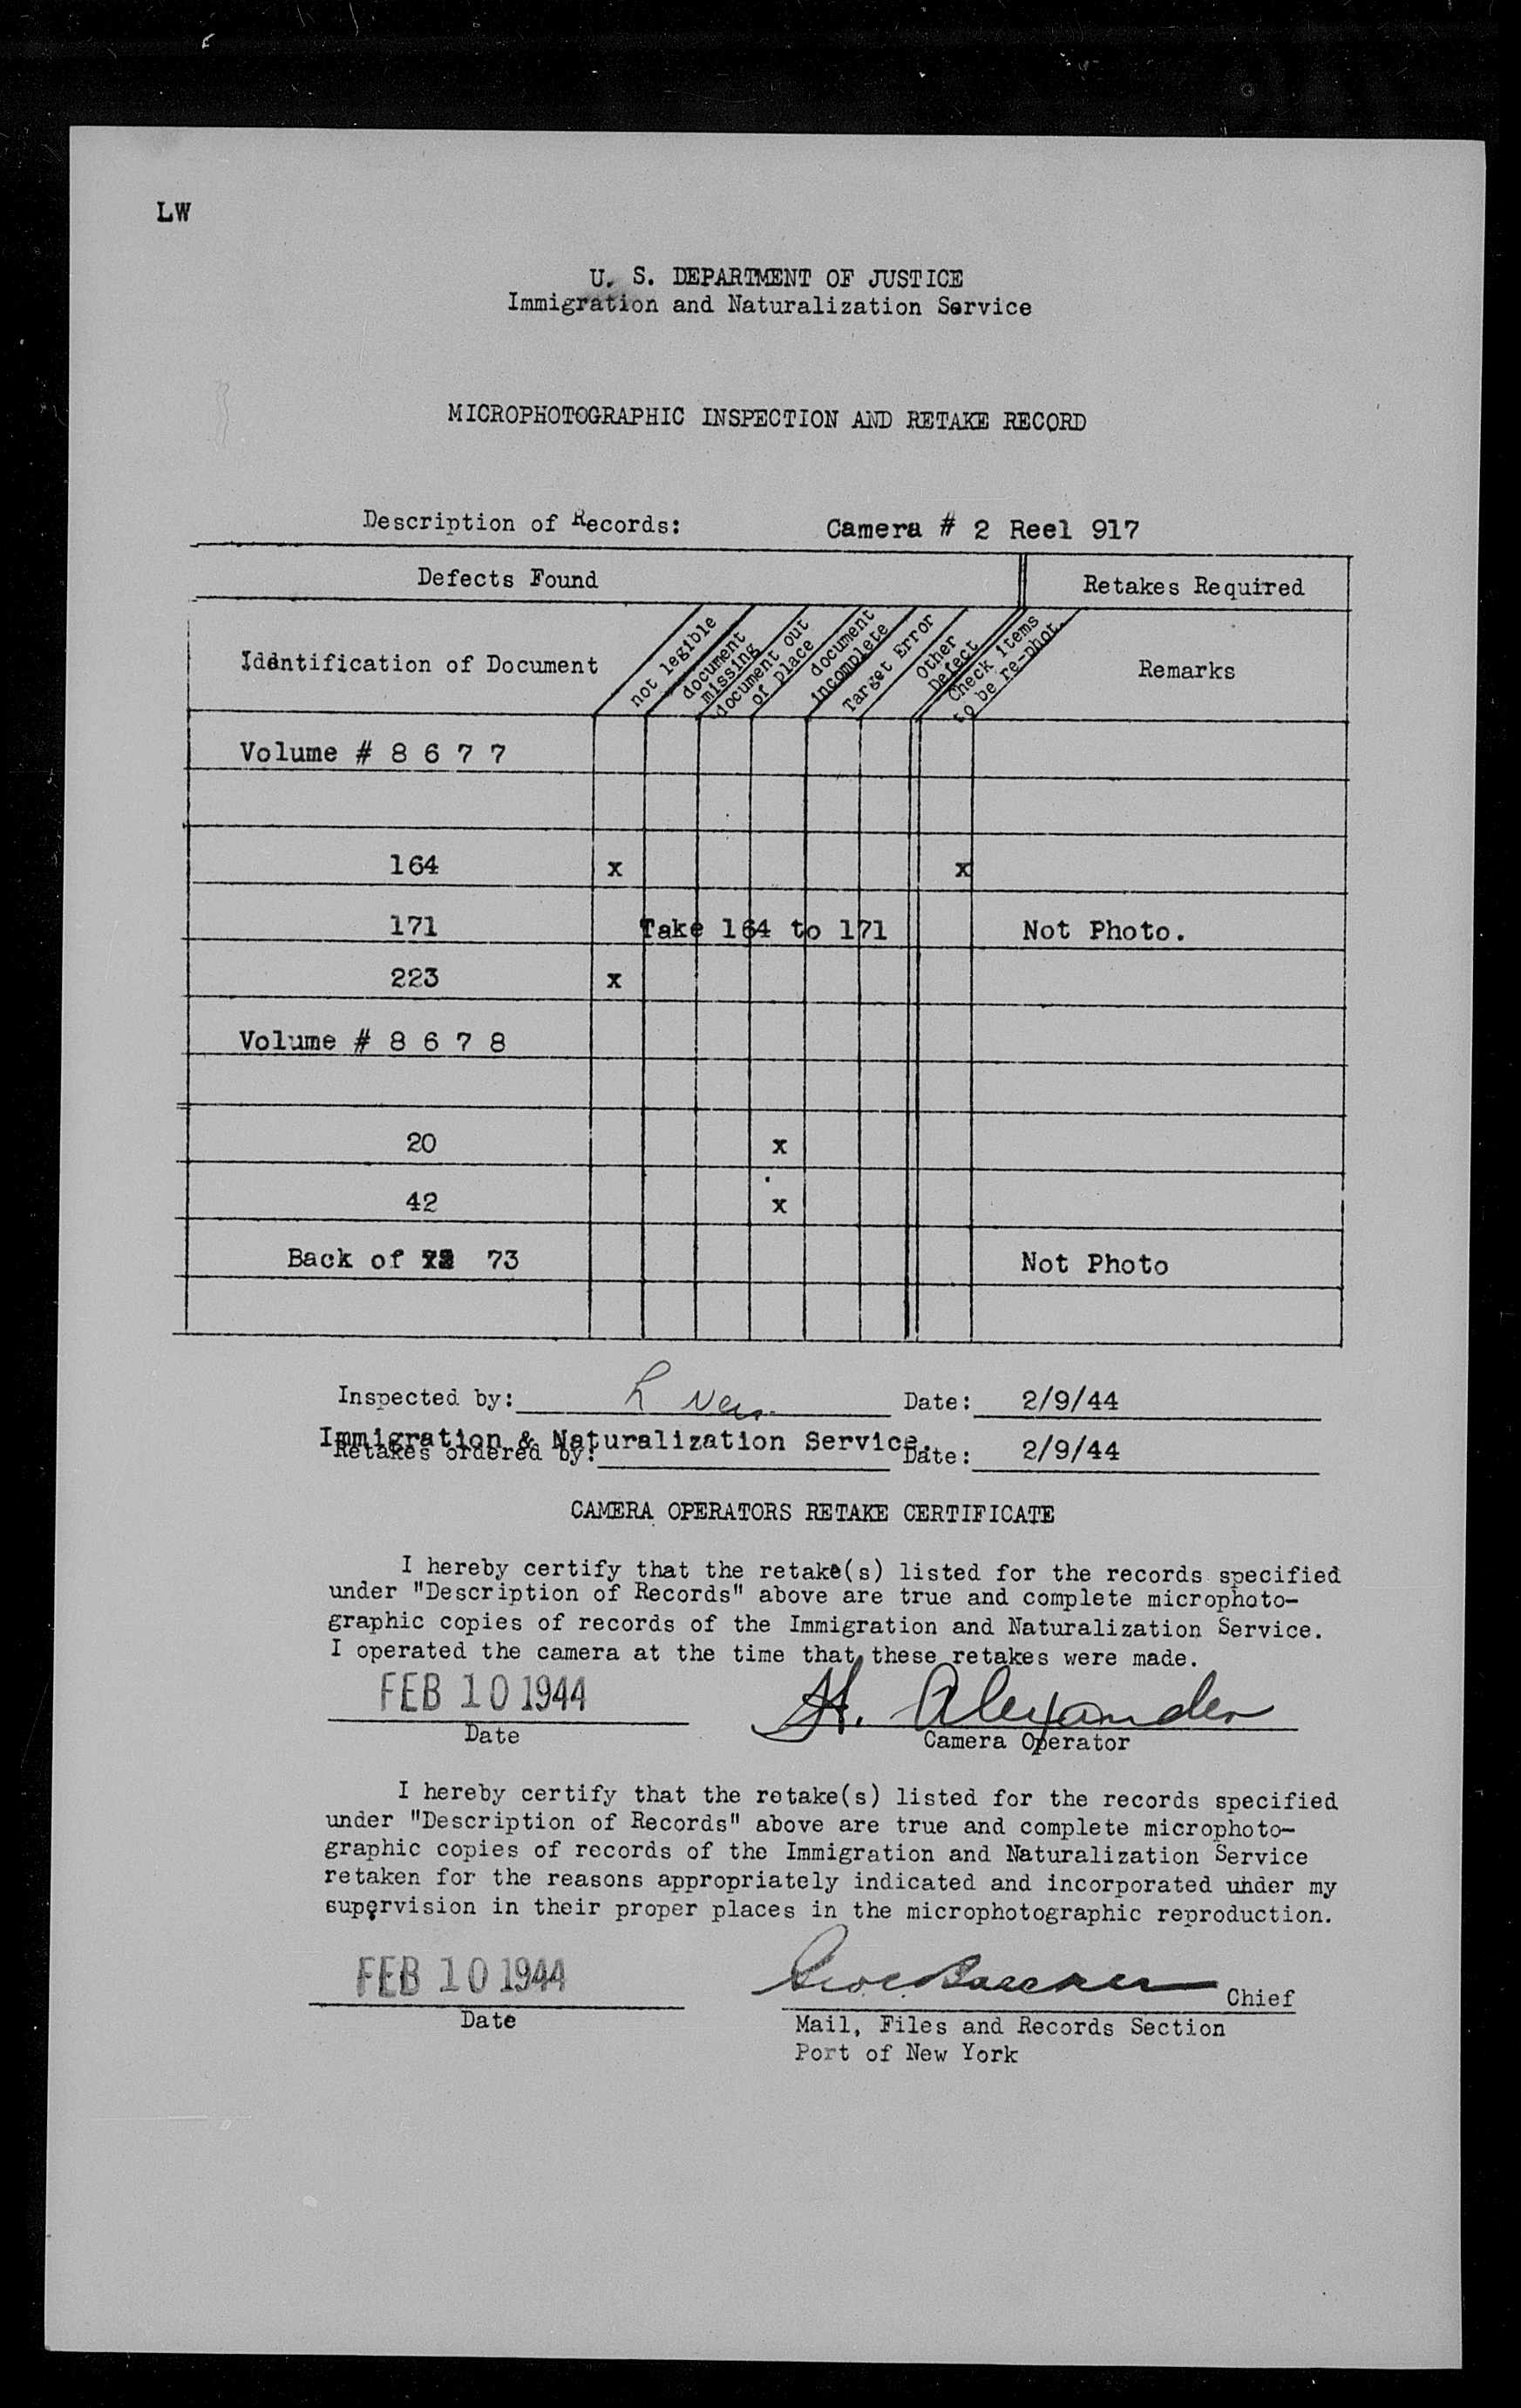 LW
U. S. DEPARTMENT OF JUSTICE
Immigration and Naturalization Service
MICROPHOTOGRAPHIC INSPECTION AND RETAKE RECORD
Description of Records: Camera # 2 Reel 917
Defects Found Retakes Required
Identification of Document not legible document missing document out of place document incomplete Target Error Other Defect Check items to be re-phot. Remarks
Volume # 8 6 7 7
164 x x
171 Take 164 to 171 Not Photo.
223 x
Volume # 8 6 7 8
20 x
42 x
Back of 73 Not Photo
Inspected by: L Date: 2/9/44
Immigration & Naturalization Service.
Retakes ordered by: Date: 2/9/44
CAMERA OPERATORS RETAKE CERTIFICATE
I hereby certify that the retake(s) listed for the records specified
under "Description of Records" above are true and complete microphoto-
graphic copies of records of the Immigration and Naturalization Service.
I operated the camera at the time that these retakes were made.
FEB 10 1944 H. Alexander
Date Camera Operator
I hereby certify that the retake(s) listed for the records specified
under "Description of Records" above are true and complete microphoto-
graphic copies of records of the Immigration and Naturalization Service
retaken for the reasons appropriately indicated and incorporated under my
supervision in their proper places in the microphotographic reproduction.
FEB 10 1944 Chief
Date Mail, Files and Records Section
Port of New York